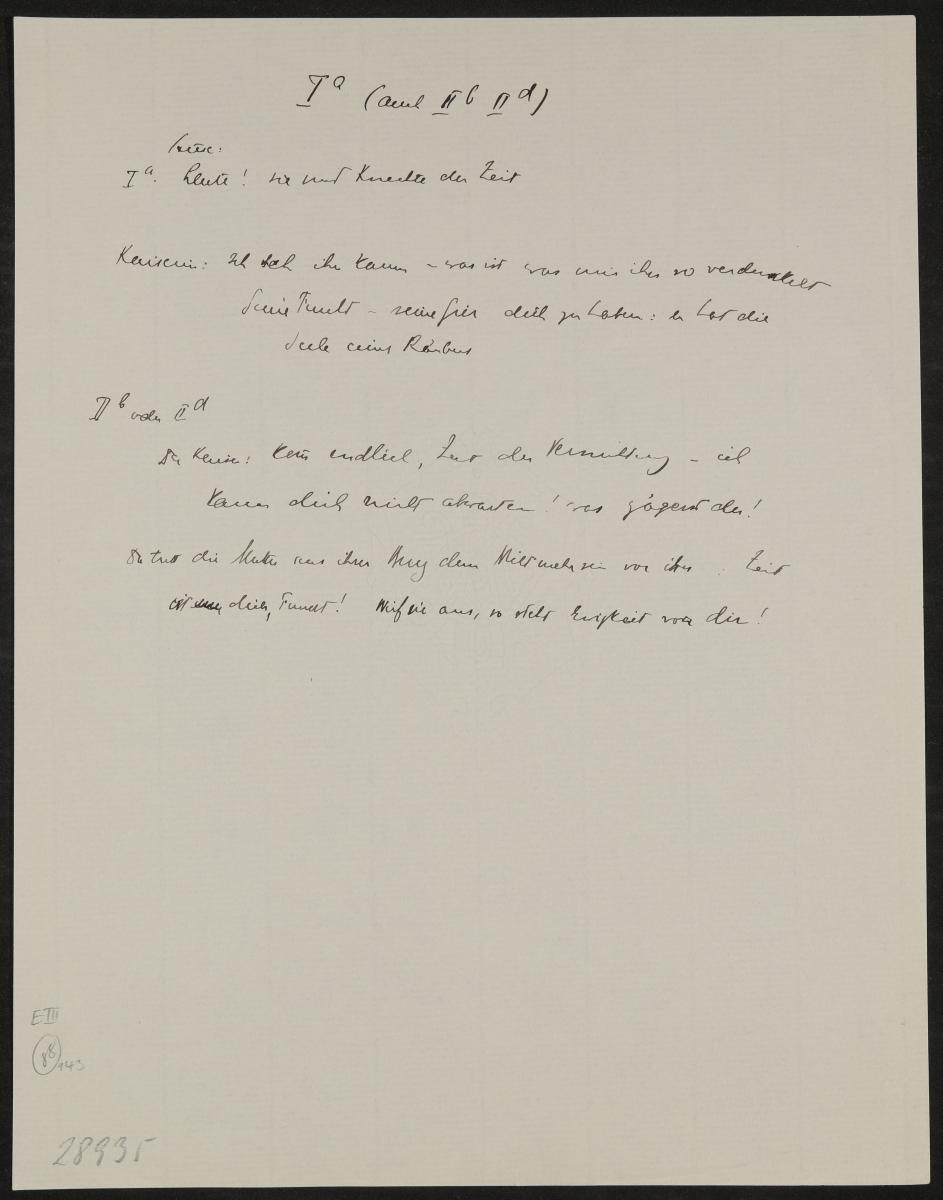 I a (auch II b II d)
I a. Leute! sie sind Knechte der Zeit
Kaiserin: Ich sah ihn kaum – was ist was mir ihn so verdunkelt
Seine Furcht – seine Gier dich zu haben: er hat die
Seele eines Räubers
II b oder II d
Der Kaiser: Komm endlich, Zeit der – ich
kann dich nicht erwarten! was zögerst du!
Da tritt die aus ihrer Burg dem vor ihn: Zeit
ist dein, Furcht! Wirf sie aus, so steht Ewigkeit vor dir!
E III
88 143
28935